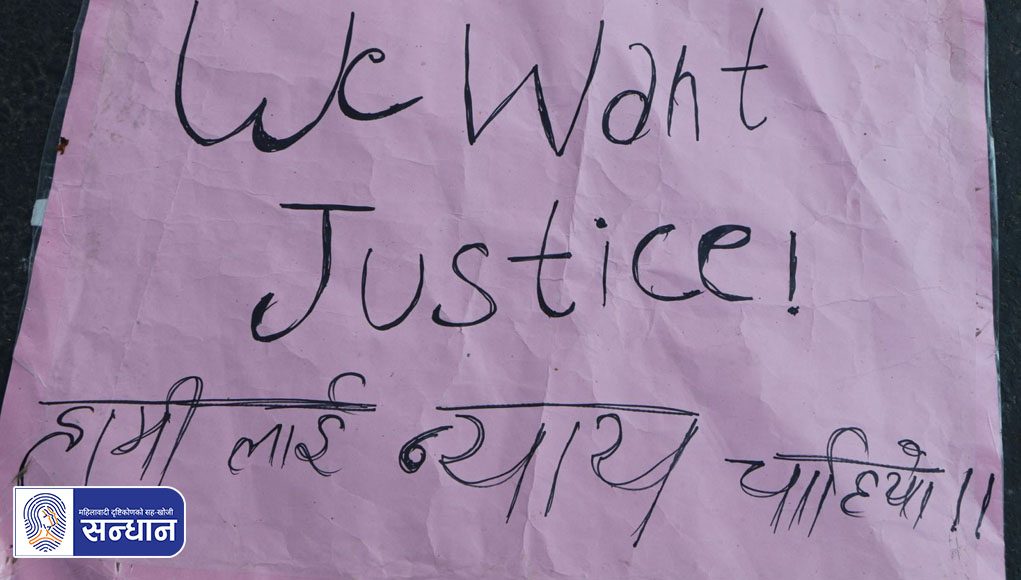 We Want
Justice!
हामी लाई न्याय चाहियो ।।
महिलावादी दृष्टिकोणको सह-खोजी
सन्धान